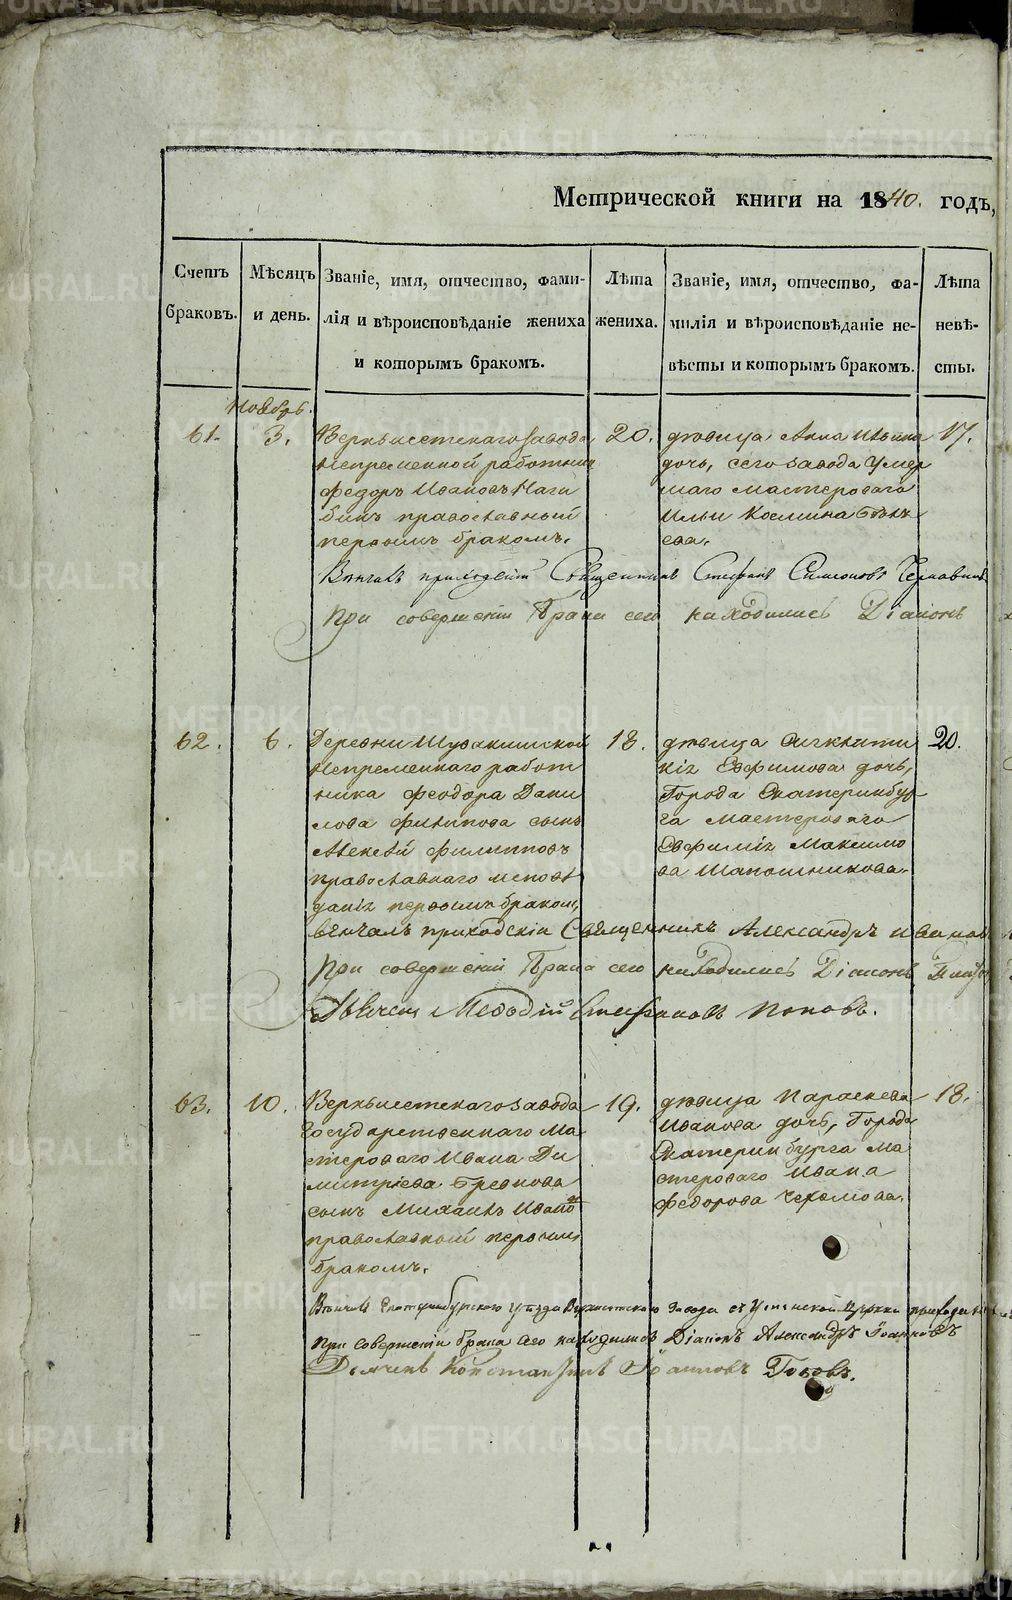 Метрической книги на 1840. годъ,
Счетъ браковъ.
Мѣсяцъ и день.
Званіе, имя, отчество, фами-
лія и вѣроисповѣданіе жениха
и которымъ бракомъ.
Лѣта жениха.
Званіе, имя, отчество, фа-
милія и вѣроисповѣданіе не-
вѣсты и которымъ бракомъ.
Лѣта невѣ-
сты.
Ноябрь.
61.
3.
Верхъисетскаго завода
непременной работник
Федоръ Ивановъ Наги
бинъ православный
первымъ бракомъ.
20.
девица Анна Ильина
дочь, сего завода умер
шаго мастероваго
Ильи Космина
ева.
17.
Вѣнчалъ приходскій Священникъ Стефанъ Симоновъ
При совершеніи Брака сего находились Діаконъ
62.
6.
Деревни
Непременнаго работ
ника Феодора Дани
лова Филипова сынъ
Алексѣй Филипповъ
православнаго исповѣ
данія первымъ бракомъ,
18.
девица
Евфимова дочь,
Города Екатеринбур
га мастероваго
Евфимія Максимо
ва Шапошникова.
20.
вѣнчалъ приходскій Священникъ Александръ Иванов
При совершеніи Брака сего находились Діаконъ
Дьячекъ Меѳодій Стефановъ Поповъ.
63.
10.
Верхъисетскаго завода
Государственнаго Ма
стероваго Ивана Ди
митріева Бревнова
сынъ Михаилъ Иванов
православный первым
бракомъ.
19.
девица Параскева
Иванова дочь, Города
Екатеринбурга ма
стероваго Ивана
Федорова
18.
Вѣнчалъ Екатеринбургскаго уѣзда Верхисетскаго завода Успенской церкви
При совершеніи брака сего находились Діаконъ Александръ Іоанновъ
Дьячекъ Константинъ Іоанновъ